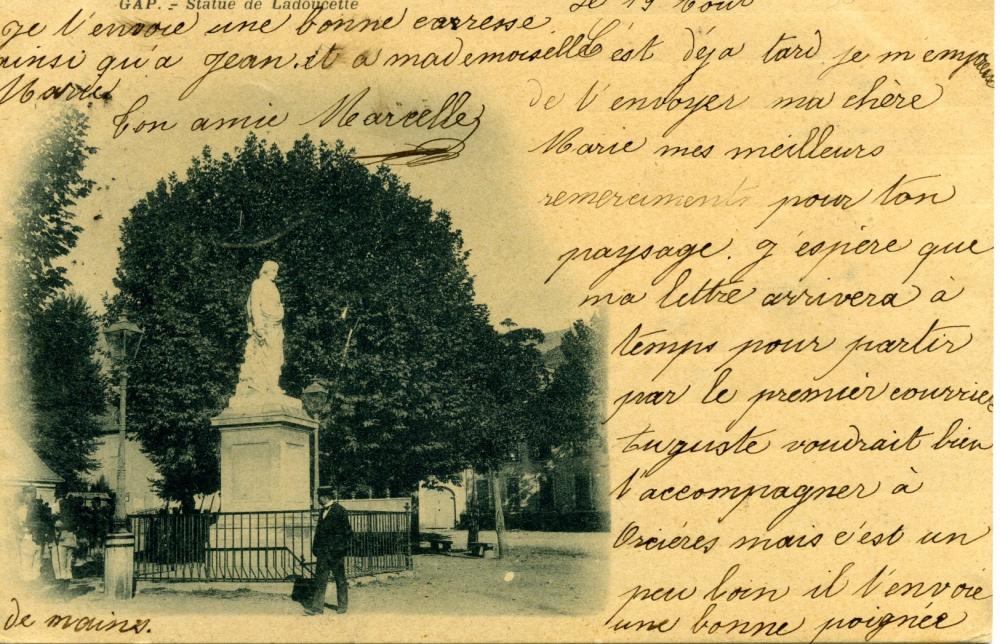 GAP. - Statue de Ladoucette
le 19 Aout
C'est déja tard je m'empresse
de t'envoyer ma chère
Marie mes meilleurs
remerciments pour ton
paysage. J'espère que
ma lettre arrivera à
temps pour partir
par le premier courrier
Auguste voudrait bien
t'accompagner à
Orcières mais c'est un
peu loin il t'envoie
une bonne poignée
de mains.
Je t'envoie une bonne carresse
ainsi qu'a Jean. et a mademoiselle
Marie
ton amie Marcelle